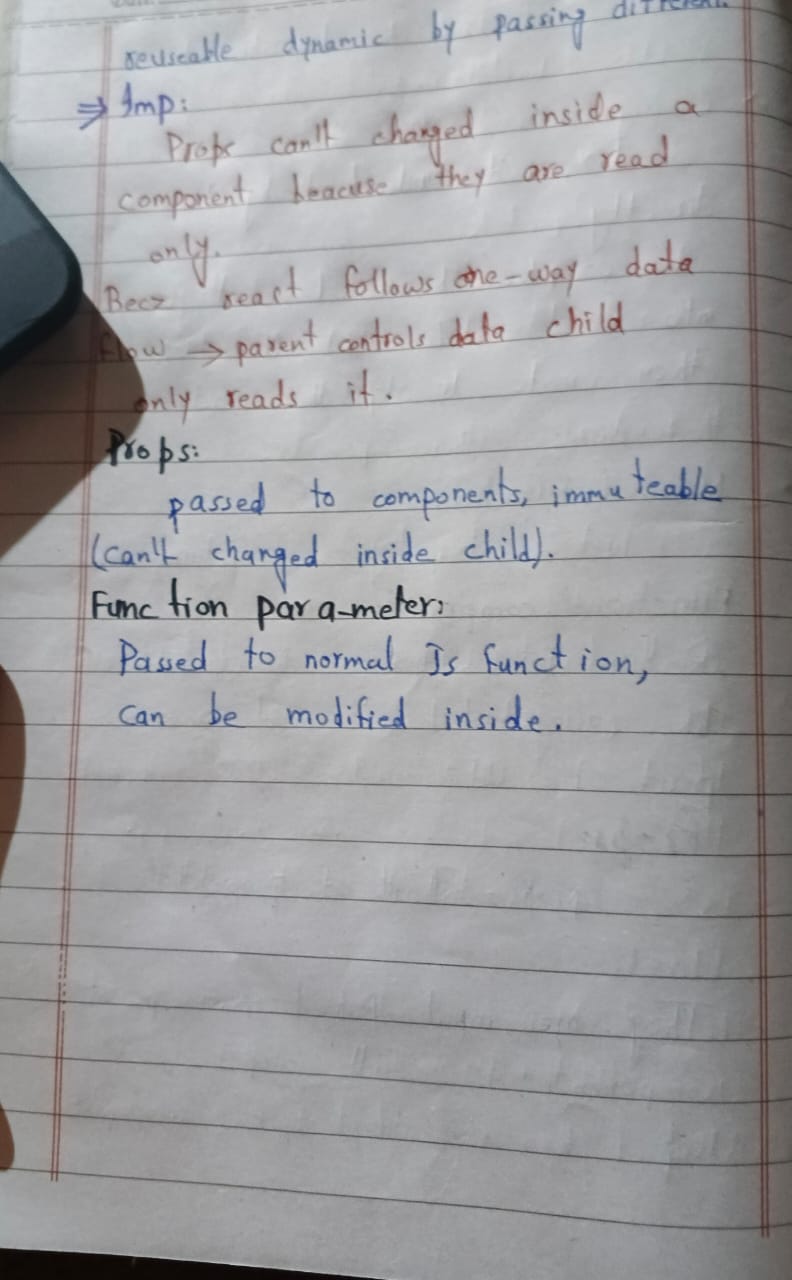 reuseable dynamic by passing different
⇒ Imp:
Props can't changed inside a
component beacuse they are read
only.
Becz react follows one-way data
flow → parent controls data child
only reads it.
Props:
passed to components, immuteable
(can't changed inside child).
Function parameter:
Passed to normal Js function,
can be modified inside.